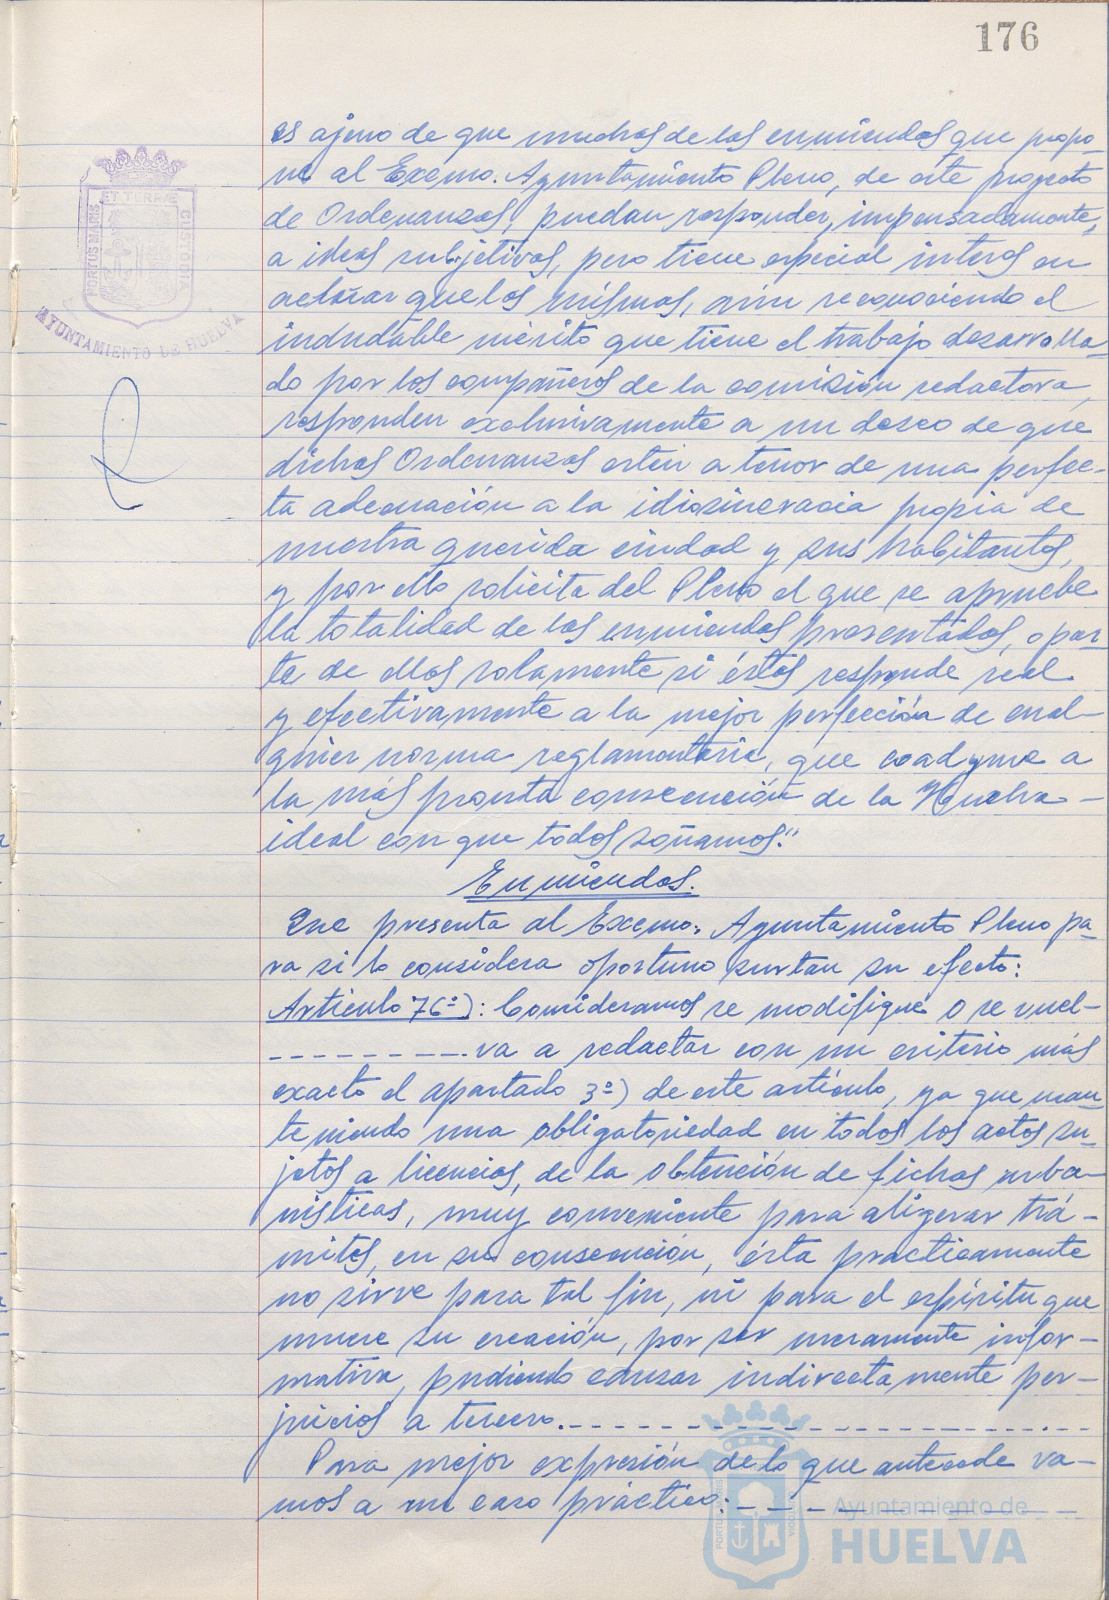 176
es ajeno de que muchas de las enmiendas que propo-
ne al Excmo. Ayuntamiento Pleno, de este proyecto
de Ordenanzas, puedan responder, impensadamente,
a ideas subjetivas, pero tiene especial interés en
aclarar que las mismas, aún reconociendo el
indudable mérito que tiene el trabajo desarrolla-
do por los compañeros de la comisión redactora,
responden exclusivamente a un deseo de que
dichas Ordenanzas estén a tenor de una perfec-
ta adecuación a la idiozincracia propia de
nuestra querida ciudad y sus habitantes,
y por ello solicita del Pleno el que se apruebe
la totalidad de las enmiendas presentadas, o par-
te de ellas solamente si éstas responde real
y efectivamente a la mejor perfección de cual-
quier norma reglamentaria, que coadyuve a
la más pronta consecución de la Huelva-
ideal con que todos soñamos."
Enmiendas.
Que presenta al Excmo. Ayuntamiento Pleno pa-
ra si lo considera oportuno surtan su efecto:
Artículo 76º): Consideramos se modifique o se vuel-
va a redactar con un criterio más
exacto el apartado 3º) de este artículo, ya que man-
teniendo una obligatoriedad en todos los actos su-
jetos a licencias, de la obtención de fichas urba-
nísticas, muy conveniente para aligerar trá-
mites, en su consecución, ésta practicamente
no sirve para tal fin, ni para el espíritu que
mueve su creación, por ser meramente infor-
mativa, pudiendo causar indirectamente per-
juicios a tercero.
Para mejor expresión de lo que antecede va-
mos a un caso práctico:
PORTUS MARIS
ET TERRAE
CUSTODIA
AYUNTAMIENTO DE HUELVA
Ayuntamiento de
HUELVA